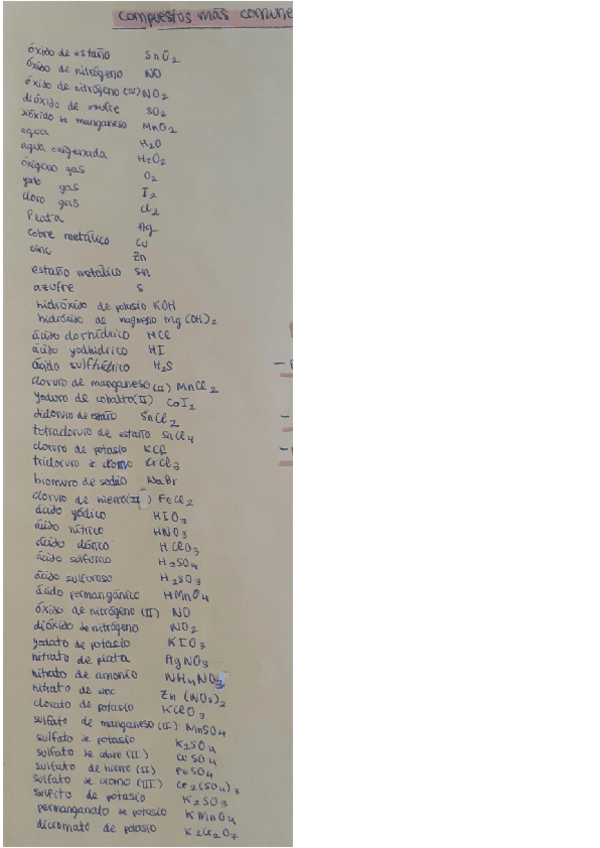 compuestos más comune
óxido de estaño SnO2
óxido de nitrógeno NO
óxido de nitrógeno (IV) NO2
dióxido de azufre SO2
dióxido de manganeso MnO2
agua H2O
agua oxigenada H2O2
oxígeno gas O2
yodo gas I2
cloro gas Cl2
Plata Ag
cobre metálico Cu
cinc Zn
estaño metálico Sn
azufre S
hidróxido de potasio KOH
hidróxido de magnesio Mg(OH)2
ácido clorhídrico HCl
ácido yodhídrico HI
ácido sulfhídrico H2S
cloruro de manganeso (II) MnCl2
yoduro de cobalto (II) CoI2
dicloruro de estaño SnCl2
tetracloruro de estaño SnCl4
cloruro de potasio KCl
tricloruro de cromo CrCl3
bromuro de sodio NaBr
cloruro de hierro (II) FeCl2
ácido yódico HIO3
ácido nítrico HNO3
ácido clórico HClO3
ácido sulfúrico H2SO4
ácido sulfuroso H2SO3
ácido permangánico HMnO4
óxido de nitrógeno (II) NO
dióxido de nitrógeno NO2
yodato de potasio KIO3
nitrato de plata AgNO3
nitrato de amonio NH4NO3
nitrato de zinc Zn(NO3)2
clorato de potasio KClO3
sulfato de manganeso (II) MnSO4
sulfato de potasio K2SO4
sulfato de cobre (II) CuSO4
sulfato de hierro (II) FeSO4
sulfato de cromo (III) Cr2(SO4)3
sulfito de potasio K2SO3
permanganato de potasio KMnO4
dicromato de potasio K2Cr2O7